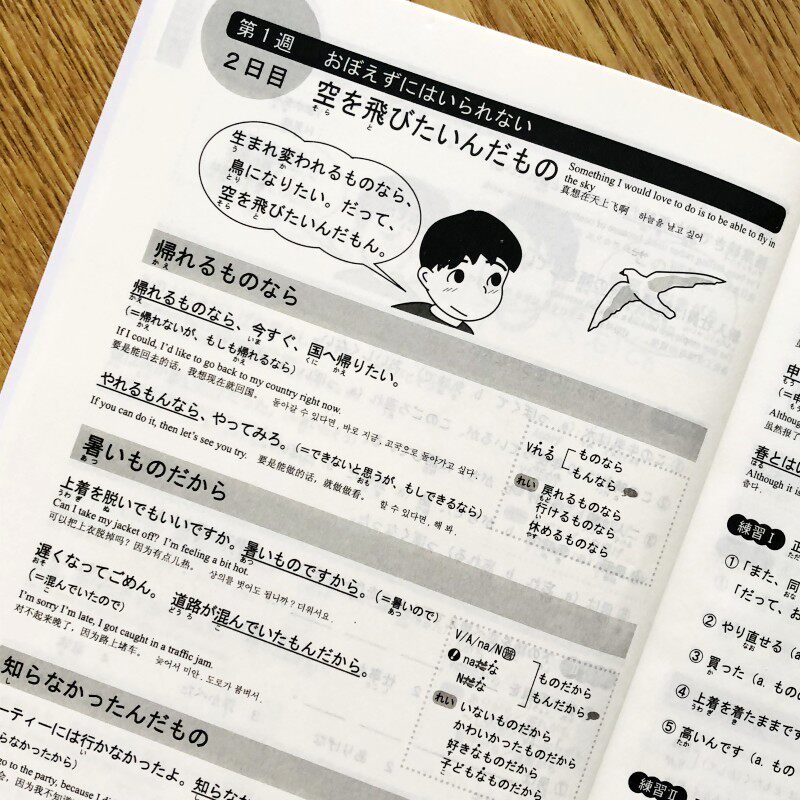 第1週 おぼえずにはいられない
2日目
空を飛びたいんだもの
そら と
Something I would love to do is to be able to fly in
the sky
真想在天上飞啊 하늘을 날고 싶어
生まれ変われるものなら、
う か
鳥になりたい。だって、
とり
空を飛びたいんだもん。
そら と
帰れるものなら
かえ
帰れるものなら、今すぐ、国へ帰りたい。
かえ いま くに かえ
(=帰れないが、もしも帰れるなら)
かえ かえ
If I could, I'd like to go back to my country right now.
要是能回去的话,我想现在就回国。 돌아갈 수 있다면, 바로 지금, 고국으로 돌아가고 싶다.
やれるもんなら、やってみろ。(=できないと思うが、もしできるなら)
おも
If you can do it, then let's see you try. 要是能做的话,就做做看。 할 수 있다면, 해 봐.
Vれる
ものなら
もんなら
れい 戻れるものなら
もど
行けるものなら
い
休めるものなら
やす
暑いものだから
あつ
上着を脱いでもいいですか。暑いものですから。(=暑いので)
うわぎ ぬ あつ あつ
Can I take my jacket off? I'm feeling a bit hot.
可以把上衣脱掉吗?因为有点儿热。 상의를 벗어도 됩니까? 더워서요.
遅くなってごめん。 道路が混んでいたもんだから。
おそ どうろ こ
(=混んでいたので)
こ
I'm sorry I'm late, I got caught in a traffic jam.
对不起来晚了,因为路上堵车。 늦어서 미안. 도로가 붐벼서.
V/A/na/N 普
naだな
Nだな
ものだから
もんだから
れい いないものだから
かわいかったものだから
好きなものだから
す
子どもなものだから
こ
知らなかったんだもの
し
ーティーには行かなかったよ。知らな
い し
らなかったから)
go to the party, because I d
会,因为我不知道
申
もう
(=申
もう
Although
虽然报了
春とはい
はる
Although it i
練習Ⅰ 正
① 「また、同
おな
「だって、お
② やり直せる (a
なお
③ 買った (a. もの
か
④ 上着を着たままです
うわぎ き
⑤ 高いんです (a. もの
たか
練習Ⅱ